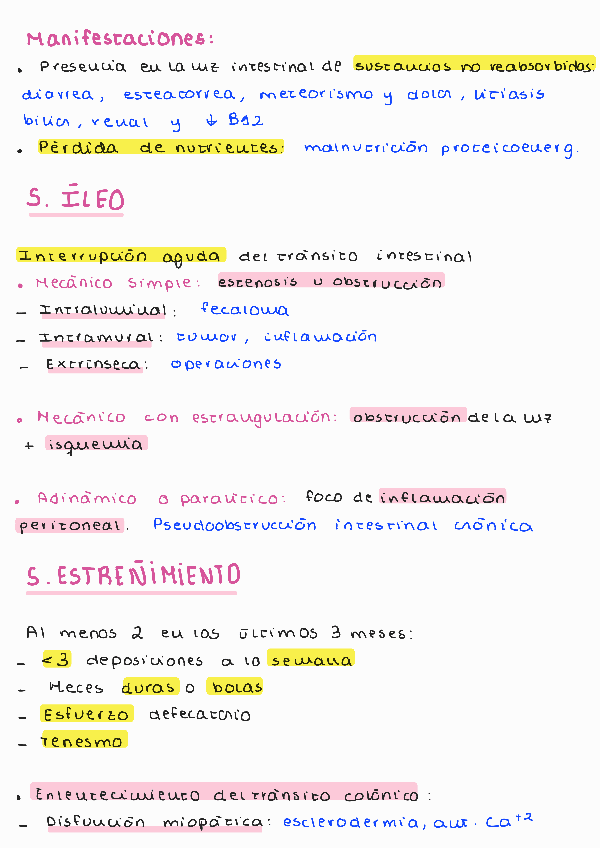 Manifestaciones:
• Presencia en la luz intestinal de sustancias no reabsorbidas:
diarrea, esteatorrea, meteorismo y dolor, litiasis
biliar, renal y ↓ B12
• Pérdida de nutrientes: malnutrición proteicoenerg.
S. ÍLEO
Interrupción aguda del tránsito intestinal
• Mecánico simple: estenosis u obstrucción
- Intraluminal: fecaloma
- Intramural: tumor, inflamación
- Extrínseca: operaciones
• Mecánico con estrangulación: obstrucción de la luz
+ isquemia
• Adinámico o paralítico: foco de inflamación
peritoneal. Pseudoobstrucción intestinal crónica
S. ESTREÑIMIENTO
Al menos 2 en los últimos 3 meses:
- <3 deposiciones a la semana
- Heces duras o bolas
- Esfuerzo defecatorio
- Tenesmo
• Enlentecimiento del tránsito colónico:
- Disfunción miopática: esclerodermia, aum. Ca+2